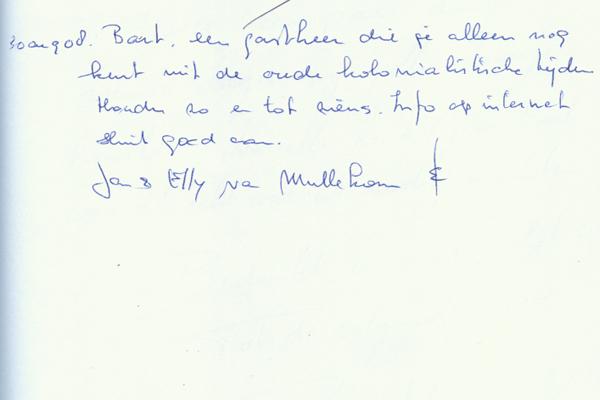 30 aug 08. Bart, een gastheer die je alleen nog
kent uit de oude kolonialistische tijden
Houden zo en tot ziens. Info op internet
sluit goed aan.
Jan & Elly va Mullekom